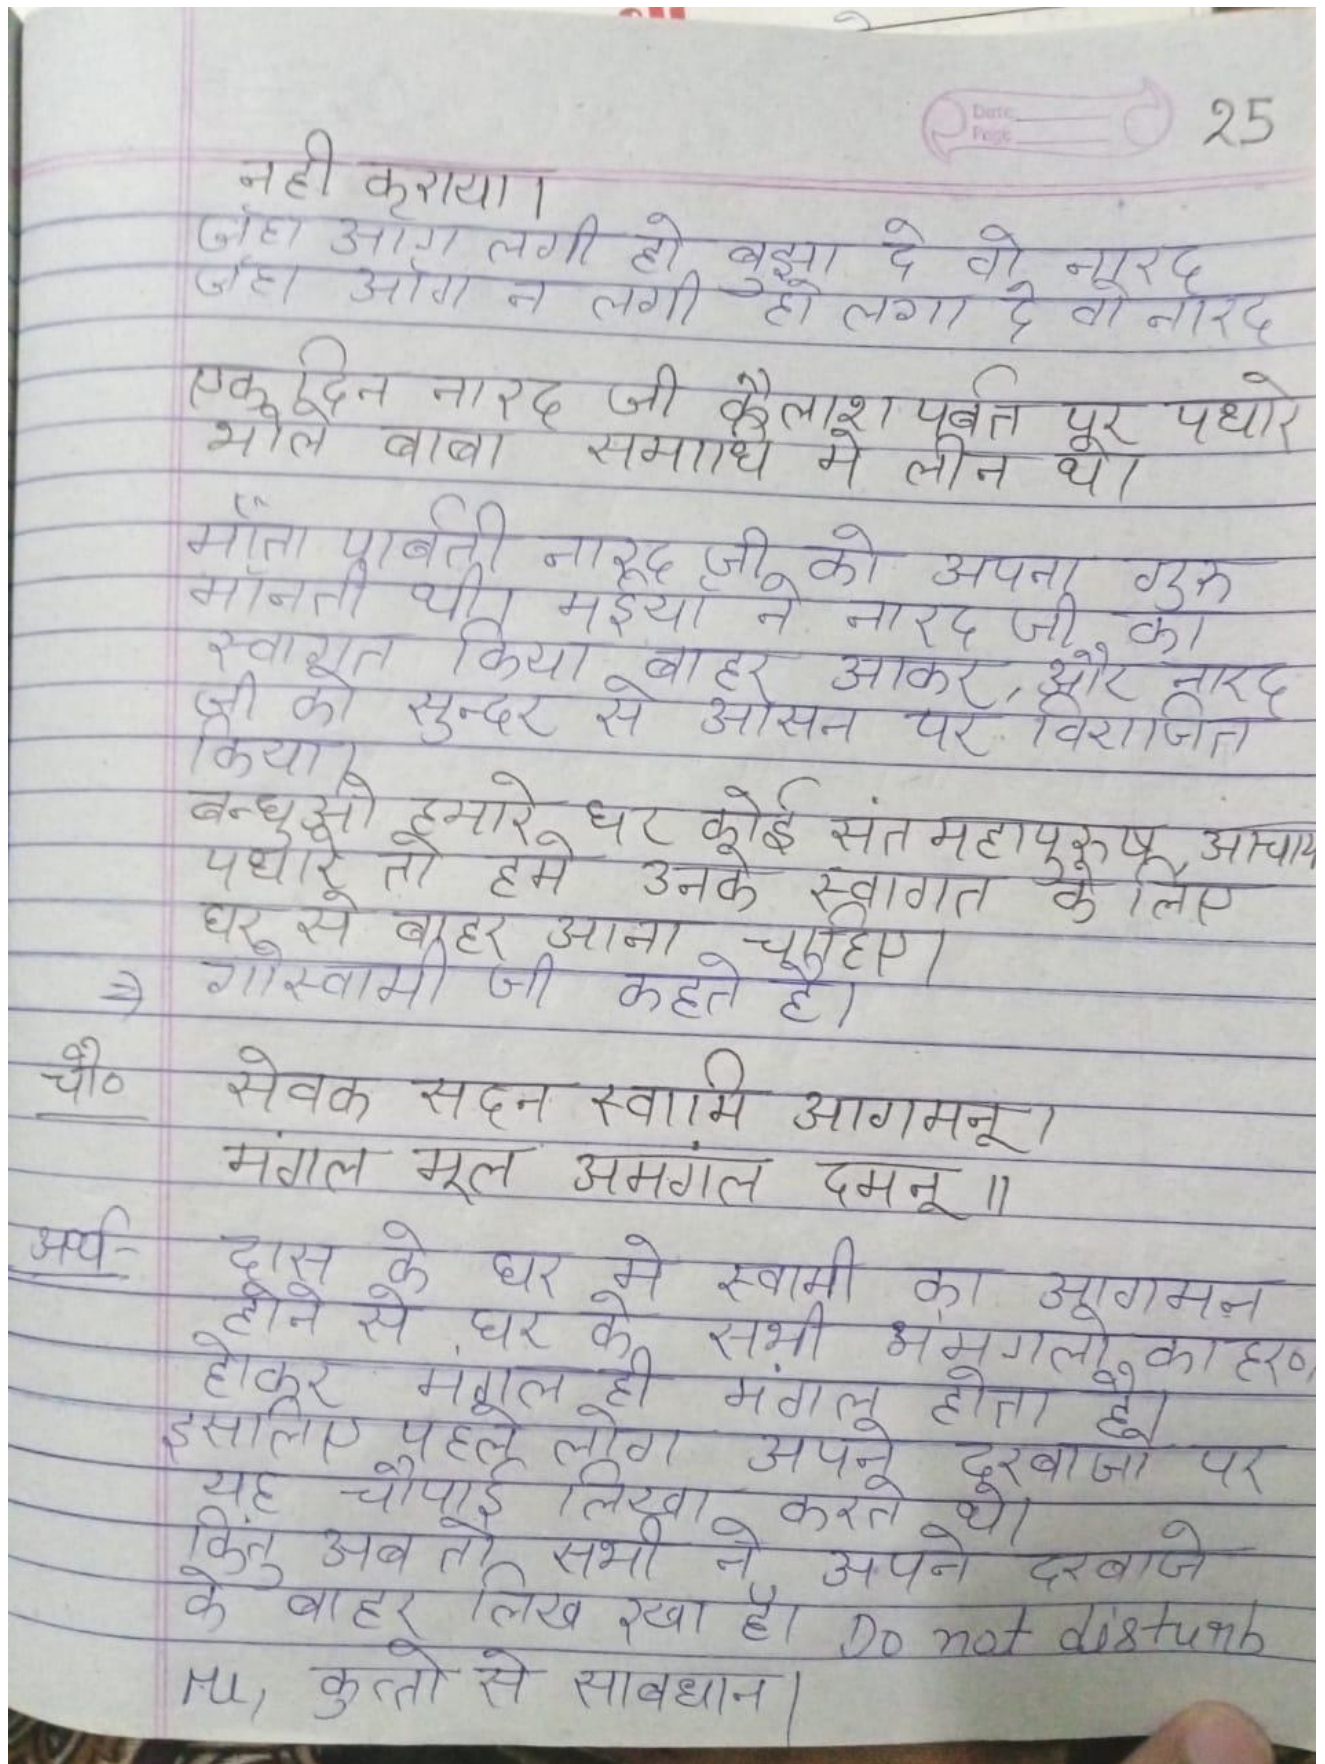 Date
Page
25
नही कराया।
जंहा आंग लगी हो बुझा दे वो नारद
जंहा आंग न लगी हो लगा दे वो नारद
एक दिन नारद जी कैलाश पर्बत पर पधारे
भोले बाबा समाधि मे लीन थे।
माँता पार्बती नारद जी को अपना गुरु
माँनती थी। मइया ने नारद जी का
स्वागत किया बाहर आकर, और नारद
जी को सुन्दर से आसन पर विराजित
किया।
बन्धुओ हमारे घर कोई संत महापुरुष, आचार्य
पधारे तो हमे उनके स्वागत के लिए
घर से बाहर आना चाहिए।
⇒ गोस्वामी जी कहते है।
चौ० सेवक सदन स्वामि आगमनू।
मंगल मूल अमगंल दमनू॥
अर्थ- दास के घर मे स्वामी का आगमन
होने से घर के सभी अमंगलो का हरण
होकर मंगल ही मंगल होता है।
इसलिए पहले लोग अपने दरबाजो पर
यह चौपाई लिखा करते थे।
किंतु अब तो सभी ने अपने दरबाजे
के बाहर लिख रखा है। Do not disturb
कुत्तो से साबधान।